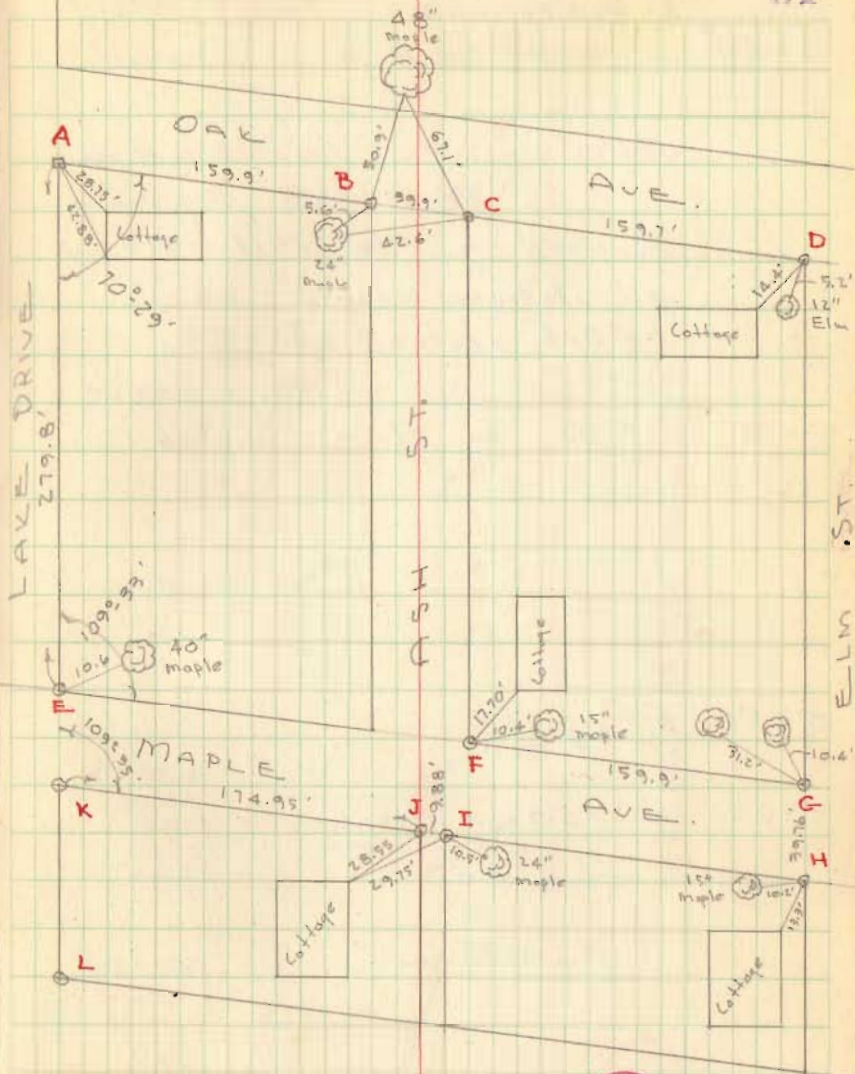 48"
maple
A
OAK
159.9'
B
C
AVE.
159.7'
D
28.75'
42.88'
Cottage
70°-29'
50.9'
67.1'
39.9'
5.6'
42.6'
24"
maple
14.2'
5.2'
12"
Elm
Cottage
LAKE DRIVE
279.8'
ASH ST.
ELM ST.
109°-33'
10.6
40"
maple
E
Cottage
17.70'
10.4'
15"
maple
F
31.2'
10.4'
159.9'
G
MAPLE
AVE.
K
174.95'
J
9.88'
I
39.76'
H
28.55
29.75'
10.5'
24"
maple
15"
maple
10.2'
Cottage
Cottage
L